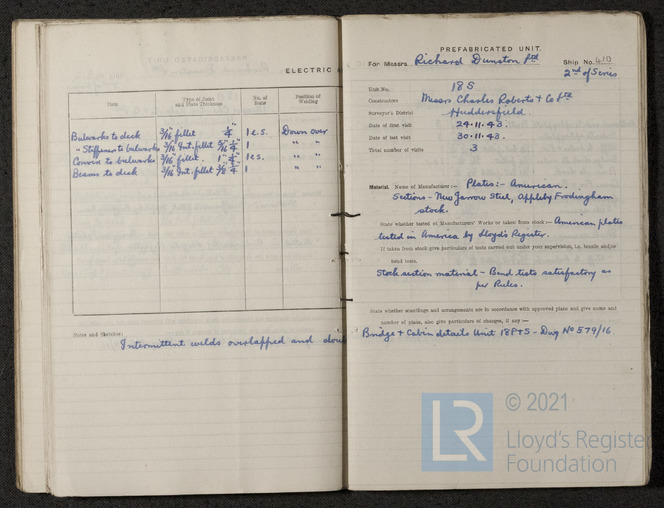 ELECTRIC
Item Type of Joint and Plate Thickness No. of Runs Position of Welding
Bulwarks to deck 3/16" fillet 1/4" 1 e.s. Down over
" Stiffeners to bulwarks 3/16" Int. fillet 5/16" 1/4" 1 " "
Convid to bulwarks 3/16" fillet. 1" 1/4" 1 e.s. " "
Beams to deck 3/16" Int. fillet 1/4" 1 " "
Notes and Sketches:
Intermittent welds overlapped and
PREFABRICATED UNIT.
For Messrs. Richard Dunston Ltd Ship No. 410
2nd of Series
Unit No. 18 S
Constructors Messrs Charles Roberts & Co Ltd
Surveyor's District Huddersfield.
Date of first visit 24.11.43.
Date of last visit 30.11.43.
Total number of visits 3
Material. Name of Manufacturer:— Plates:- American.
Sections - New Jarrow Steel, Appleby Frodingham
stock.
State whether tested at Manufacturers' Works or taken from stock:— American plates
tested in America by Lloyd's Register.
If taken from stock give particulars of tests carried out under your supervision, i.e. tensile and/or
bend tests.
Stock section material - Bend tests satisfactory as
per Rules.
State whether scantlings and arrangements are in accordance with approved plans and give name and
number of plans, also give particulars of changes, if any:—
Bridge & Cabin details Unit 18P&S - Dwg No 579/16
LR © 2021
Lloyd's Register
Foundation